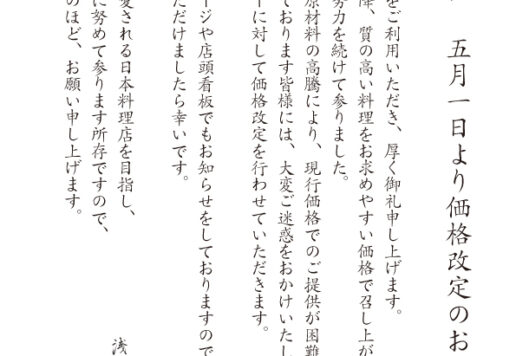 五月一日より価格改定のお
をご利用いただき、厚く御礼申し上げます。
降、質の高い料理をお求めやすい価格で召し上が
努力を続けて参りました。
原材料の高騰により、現行価格でのご提供が困難
ております皆様には、大変ご迷惑をおかけいたし
ーに対して価格改定を行わせていただきます。
ージや店頭看板でもお知らせをしておりますので
ただけましたら幸いです。
愛される日本料理店を目指し、
に努めて参ります所存ですので、
のほど、お願い申し上げます。
浅